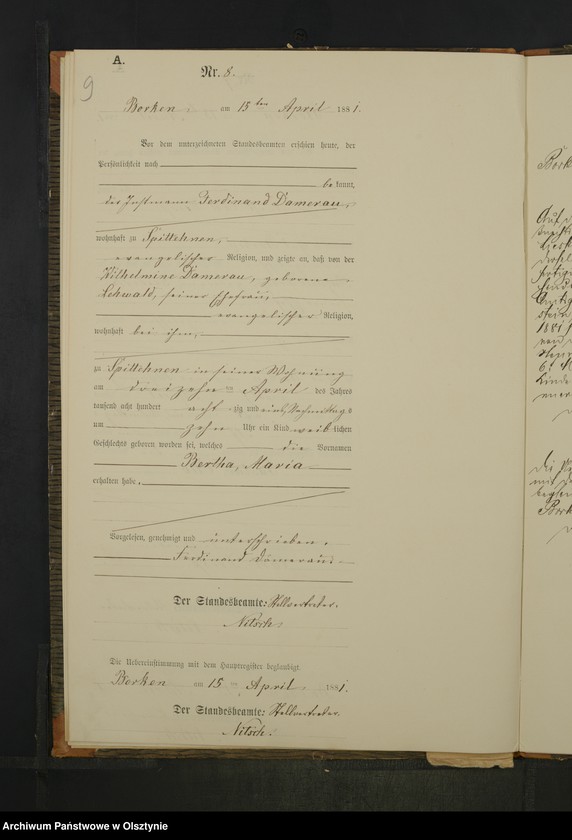 A.
9
Nr. 8.
Borken am 15ten April 1881.
Vor dem unterzeichneten Standesbeamten erschien heute, der
Persönlichkeit nach
bekannt,
der Instmann Ferdinand Damerau,
wohnhaft zu Spittehnen,
evangelischer Religion, und zeigte an, daß von der
Wilhelmine Damerau, geborene
Lehwald, seiner Ehefrau,
evangelischer Religion,
wohnhaft bei ihm,
zu Spittehnen in seiner Wohnung
am dreizehn ten April des Jahres
tausend acht hundert acht zig und eins Nachmittags
um zehn Uhr ein Kind weiblichen
Geschlechts geboren worden sei, welches die Vornamen
Bertha, Maria
erhalten habe.
Vorgelesen, genehmigt und unterschrieben.
Ferdinand Damerau
Der Standesbeamte: Stellvertreter.
Nitsch
Die Uebereinstimmung mit dem Hauptregister beglaubigt.
Borken am 15 ten April 1881.
Der Standesbeamte: Stellvertreter.
Nitsch.
Auf
1881
Archiwum Państwowe w Olsztynie